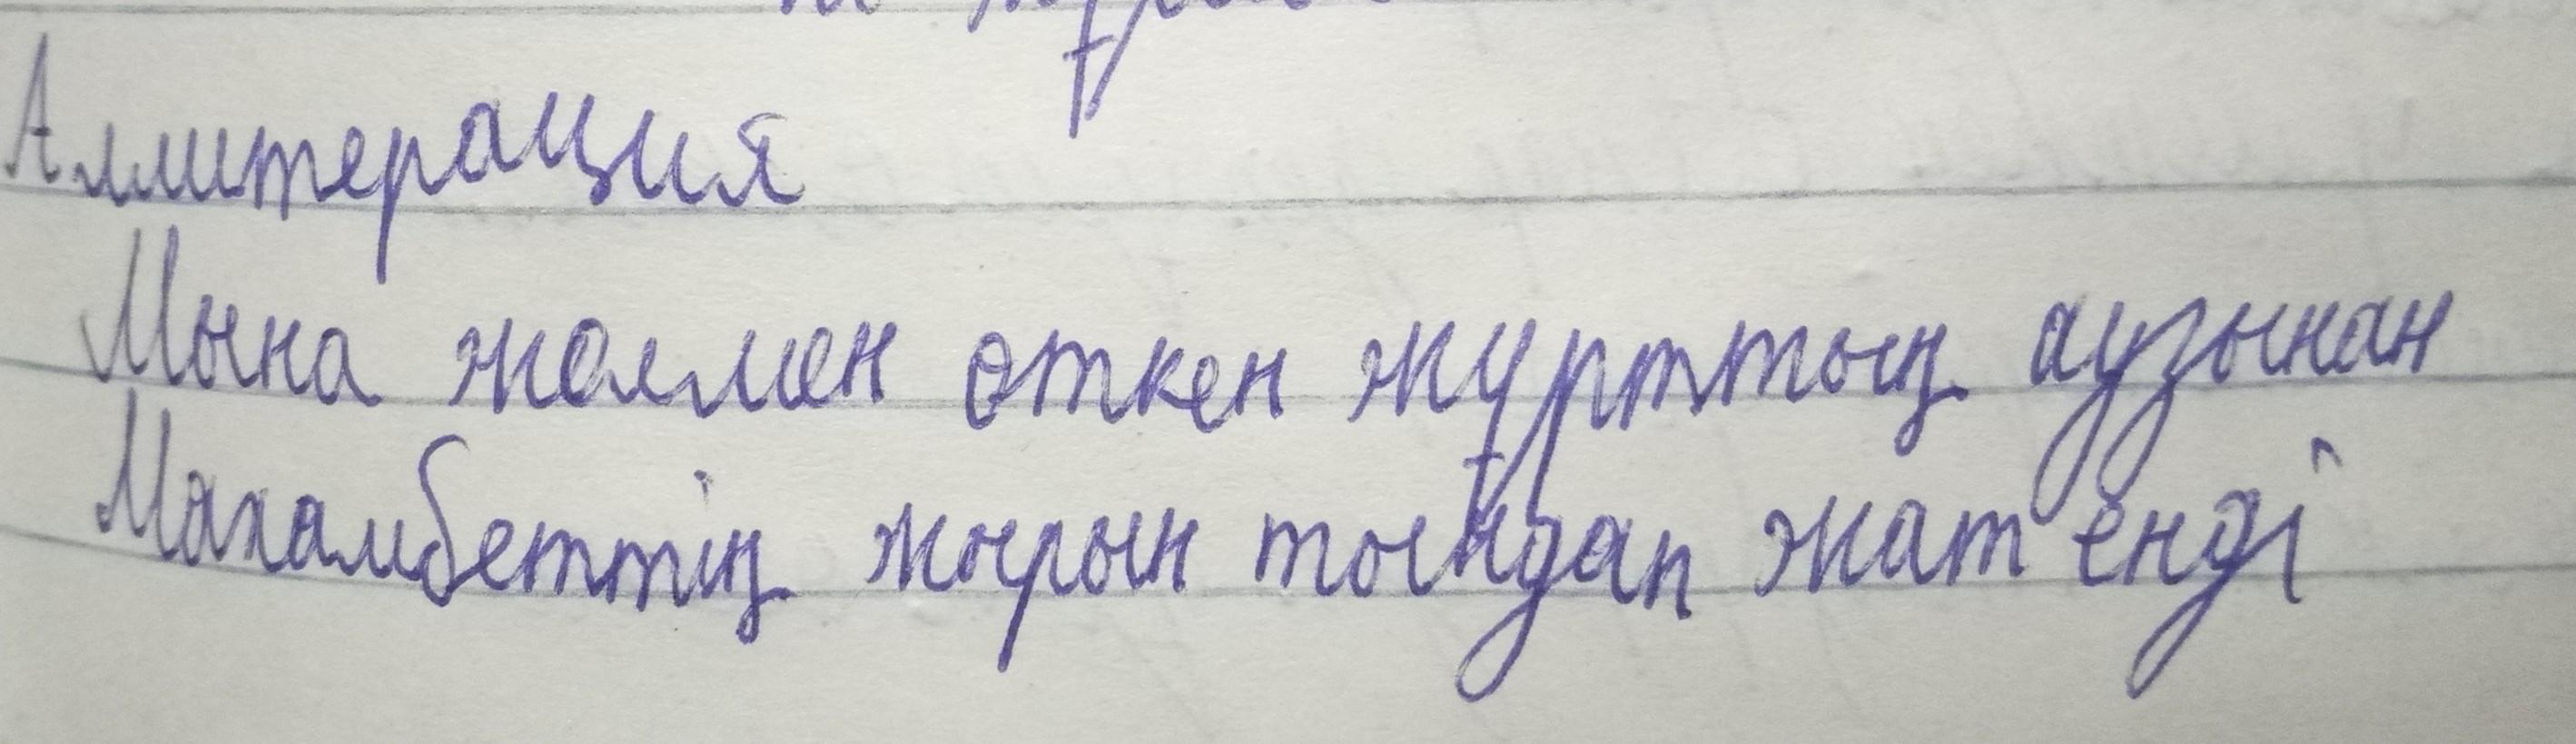 Аллитерация
Мына жолмен өткен жұрттың аузынан
Махамбеттің жырын тыңдап жат енді